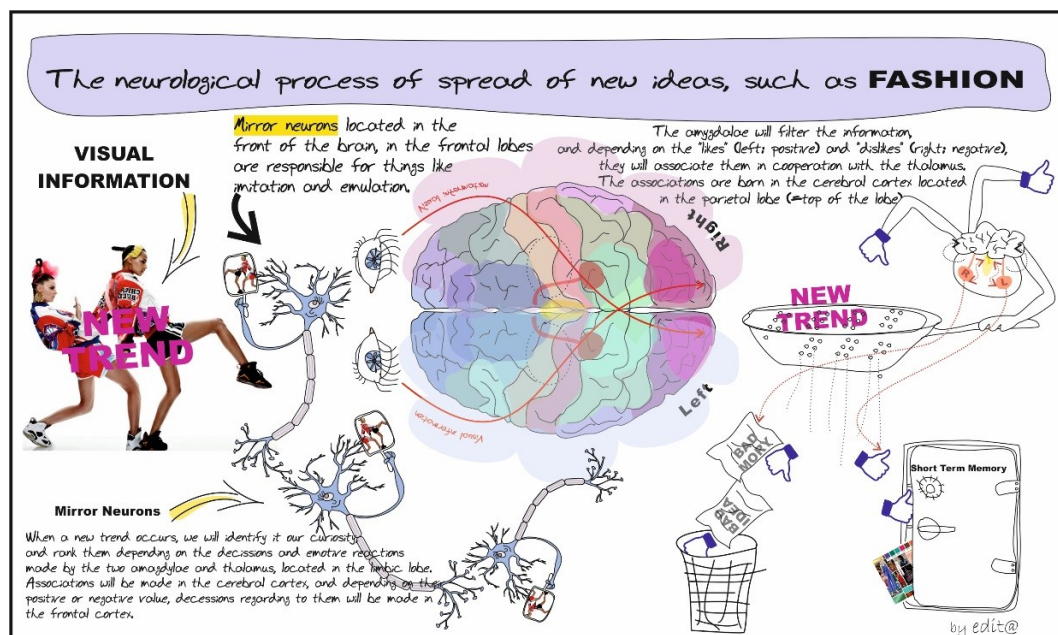 The neurological process of spread of new ideas, such as FASHION
VISUAL
INFORMATION
NEW
TREND
Mirror neurons located in the
front of the brain, in the frontal lobes
are responsible for things like
imitation and emulation.
The amygdalae will filter the information,
and depending on the "likes" (left: positive) and "dislikes" (right: negative),
they will associate them in cooperation with the thalamus.
The associations are born in the cerebral cortex located
in the parietal lobe (=top of the lobe)
Visual information
Right
Visual information
Left
R
L
NEW
TREND
BAD
MORY
BAD
IDEA
Short Term Memory
Mirror Neurons
When a new trend occurs, we will identify it our curiosity
and rank them depending on the decissions and emotive reactions
made by the two amagdylae and thalamus, located in the limbic lobe.
Associations will be made in the cerebral cortex, and depending on the
positive or negative value, decessions regarding to them will be made in
the frontal cortex.
by edit@